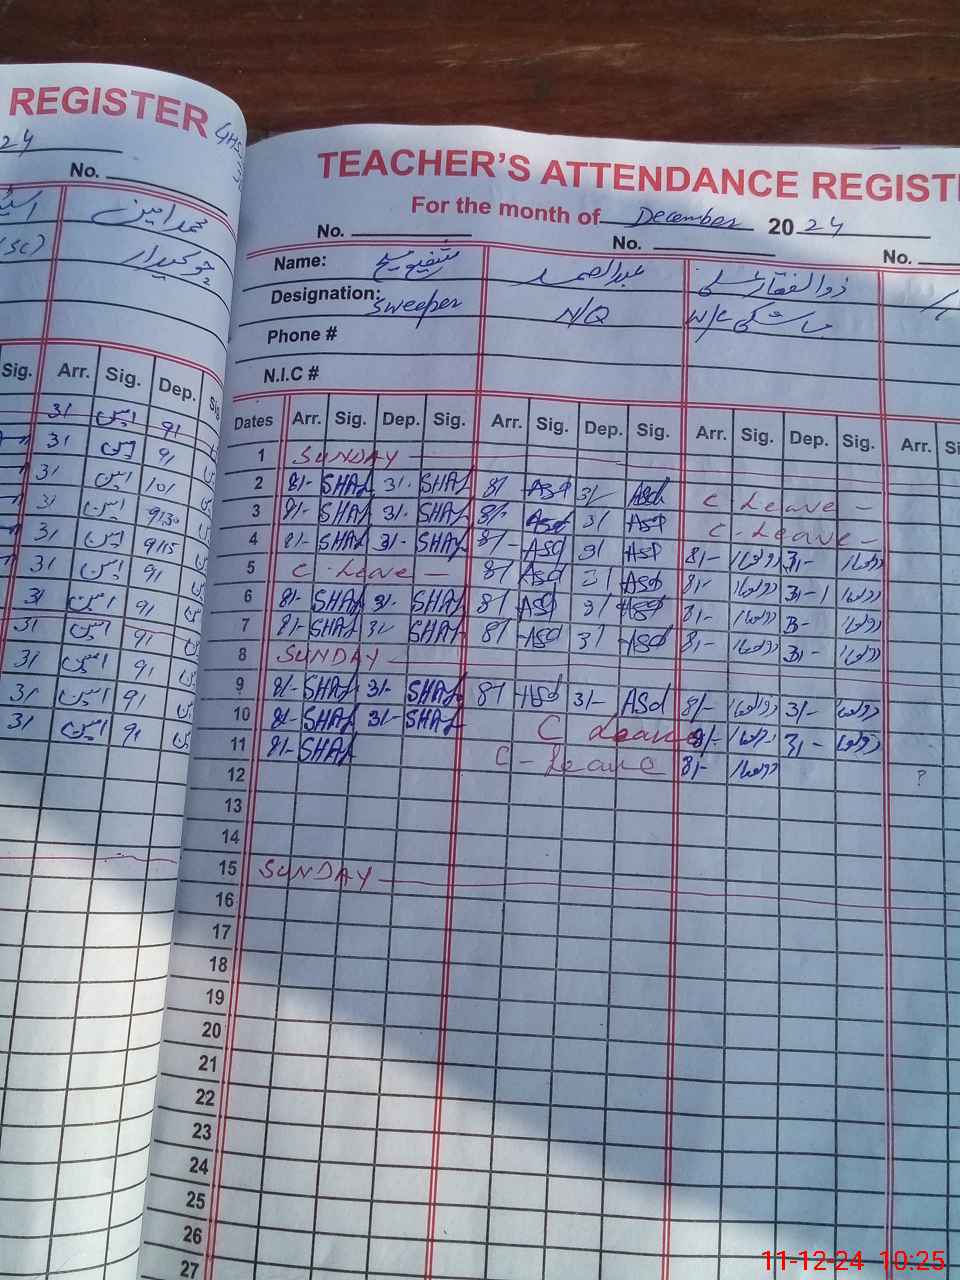 REGISTER
24
No.
محمد امین
چوکیدار
(SC)
Sig. Arr. Sig. Dep.
31 امین 91
31 امین 91
31 امین 101
31 امین 9130
31 امین 9115
31 امین 91
31 امین 91
31 امین 91
31 امین 91
31 امین 91
31 امین 91
TEACHER'S ATTENDANCE REGIST
For the month of December 2024
No. No. No.
Name: شفیق مسیح عبدالصمد ذوالفقار علی
Designation: Sweeper N/Q W/C ماشکی
Phone #
N.I.C #
Dates Arr. Sig. Dep. Sig. Arr. Sig. Dep. Sig. Arr. Sig. Dep. Sig. Arr.
1 SUNDAY
2 81- SHAf 31- SHAf 81 ASd 31- ASd C Leave -
3 81- SHAf 31- SHAf 81- ASd 31 ASd C Leave -
4 81- SHAf 31- SHAf 81- ASd 31 ASd 81- 31-
5 C Leave - 81 ASd 31 ASd 81- 31-
6 81- SHAf 31- SHAf 81 ASd 31 ASd 81- 3-
7 81- SHAf 31- SHAf 81 ASd 31 ASd 81- 31-
8 SUNDAY
9 81- SHAf 31- SHAf 81 ASd 31- ASd 81- 31-
10 81- SHAf 31- SHAf C Leave 81- 31-
11 81- SHAf C - Leave 81-
12 ?
13
14
15 SUNDAY
16
17
18
19
20
21
22
23
24
25
26
27
11-12-24 10:25